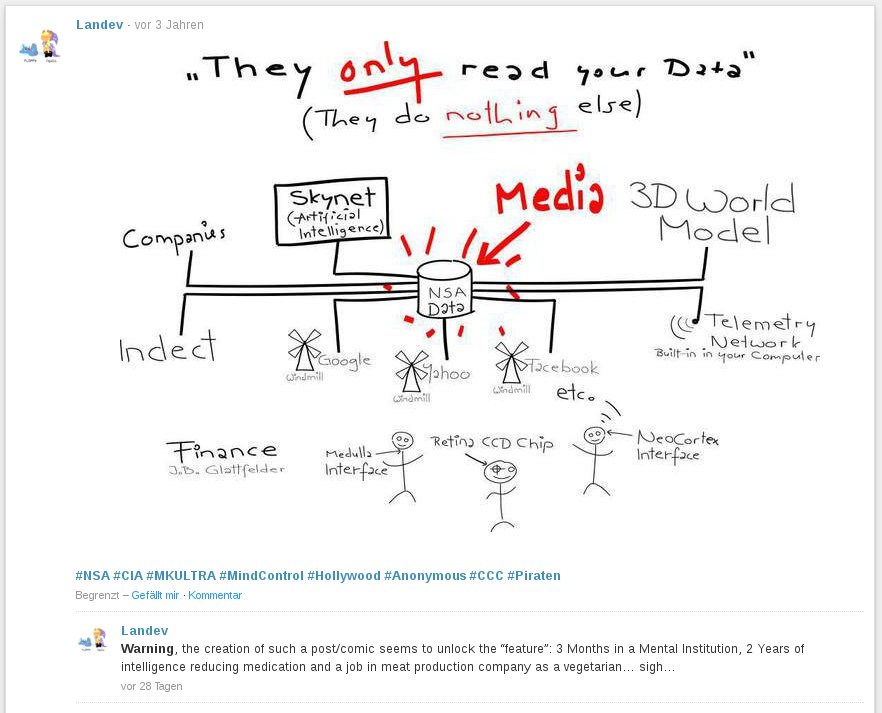 Landev · vor 3 Jahren
„They only read your Data"
(They do nothing else)
Skynet
(Artificial
Intelligence)
Media
3D World
Model
Companies
NSA
Data
Indect
Google
Windmill
Yahoo
Windmill
Facebook
Windmill
etc.
Telemetry
Network
Built-in in your Computer
Finance
J.B. Glattfelder
Medulla
Interface
Retina CCD Chip
NeoCortex
Interface
#NSA #CIA #MKULTRA #MindControl #Hollywood #Anonymous #CCC #Piraten
Begrenzt – Gefällt mir · Kommentar
Landev
Warning, the creation of such a post/comic seems to unlock the “feature”: 3 Months in a Mental Institution, 2 Years of
intelligence reducing medication and a job in meat production company as a vegetarian… sigh…
vor 28 Tagen